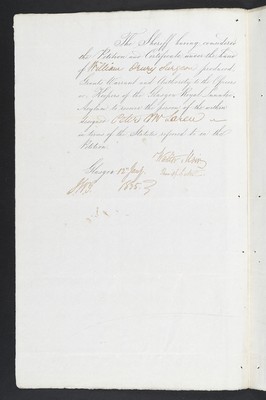 The Sheriff having considered
the Petition and Certificate under the hand
of William Surgeon produced,
Grants Warrant and Authority to the Officer
or Keepers of the Glasgow Royal Lunatic
Asylum to receive the person of the within
designed Peter McLaren
in terms of the Statutes referred to in the
Petition
Glasgow 15 July
1835